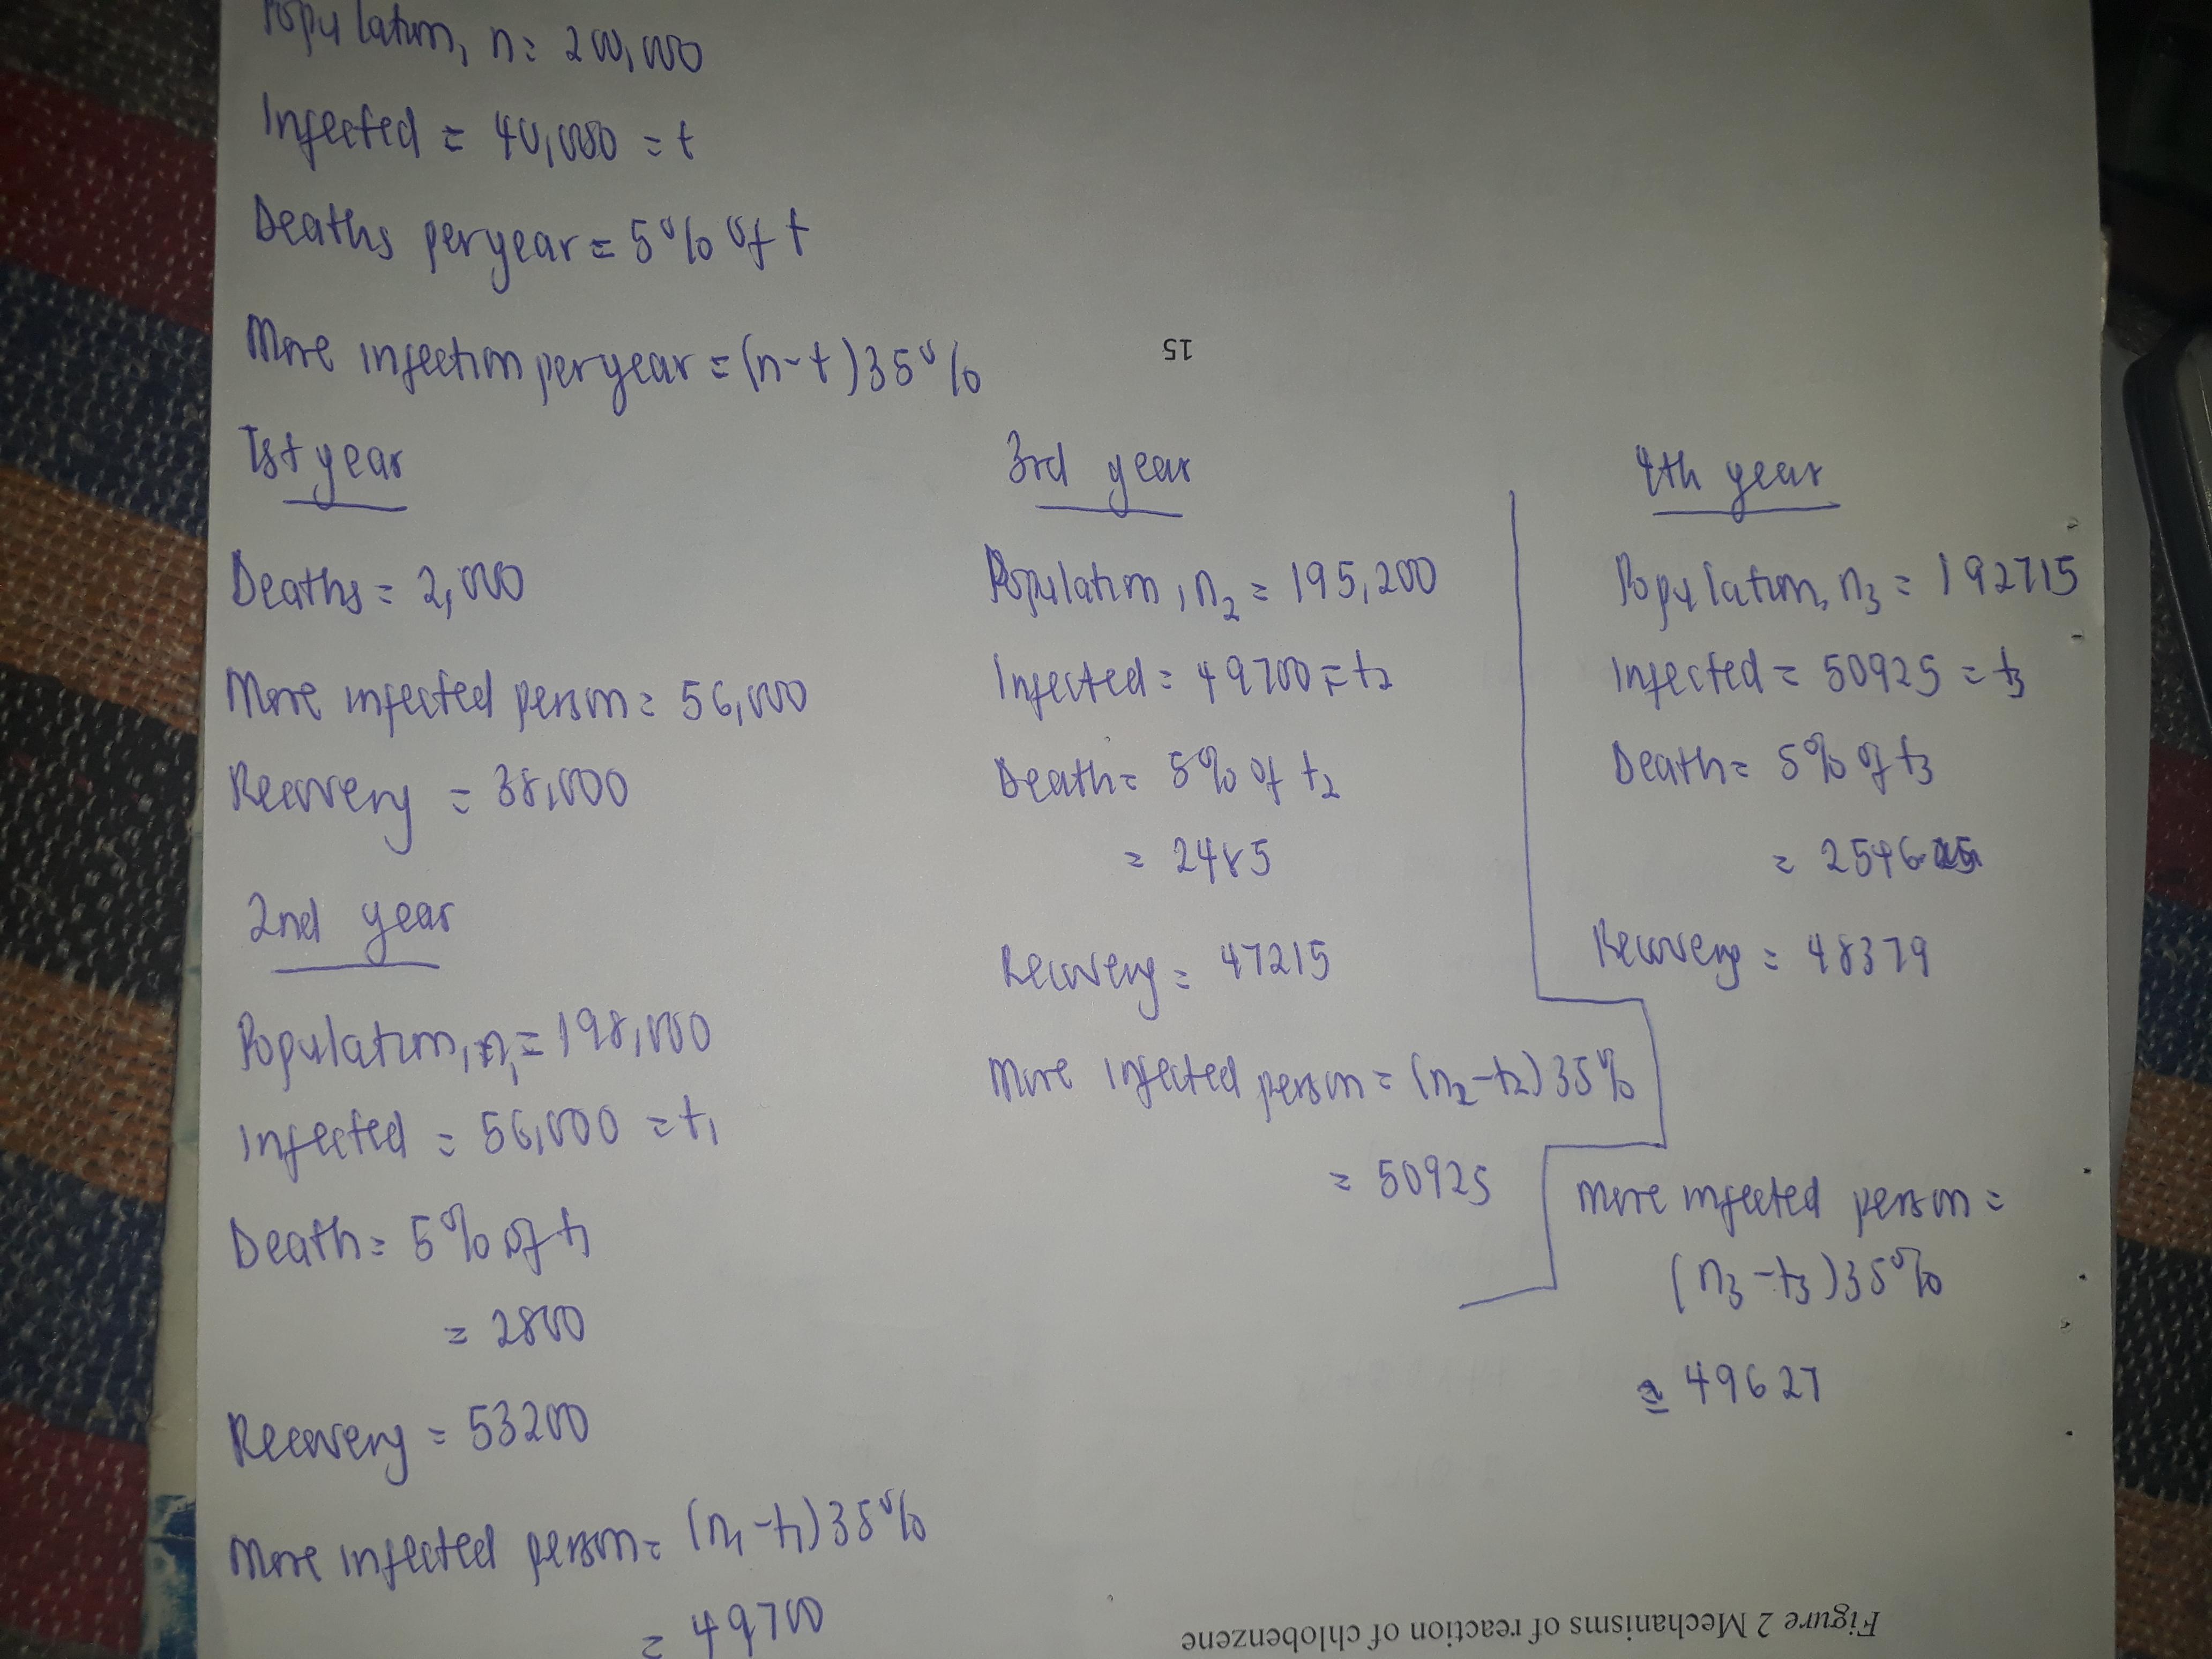 Population, n = 200,000
Infected = 40,000 = t
Deaths per year = 5% of t
More infection per year = (n-t)35%
15
1st year
Deaths = 2,000
More infected person = 56,000
Recovery = 38,000
2nd year
Population, n1 = 198,000
Infected = 56,000 = t1
Death = 5% of t1
= 2800
Recovery = 53200
More infected person = (n1-t1)35%
= 49700
3rd year
Population, n2 = 195,200
Infected = 49700 = t2
Death = 5% of t2
= 2485
Recovery = 47215
More infected person = (n2-t2)35%
= 50925
4th year
Population, n3 = 192715
Infected = 50925 = t3
Death = 5% of t3
= 2546.25
Recovery = 48379
More infected person =
(n3-t3)35%
= 49627
Figure 2 Mechanisms of reaction of chlobenzene